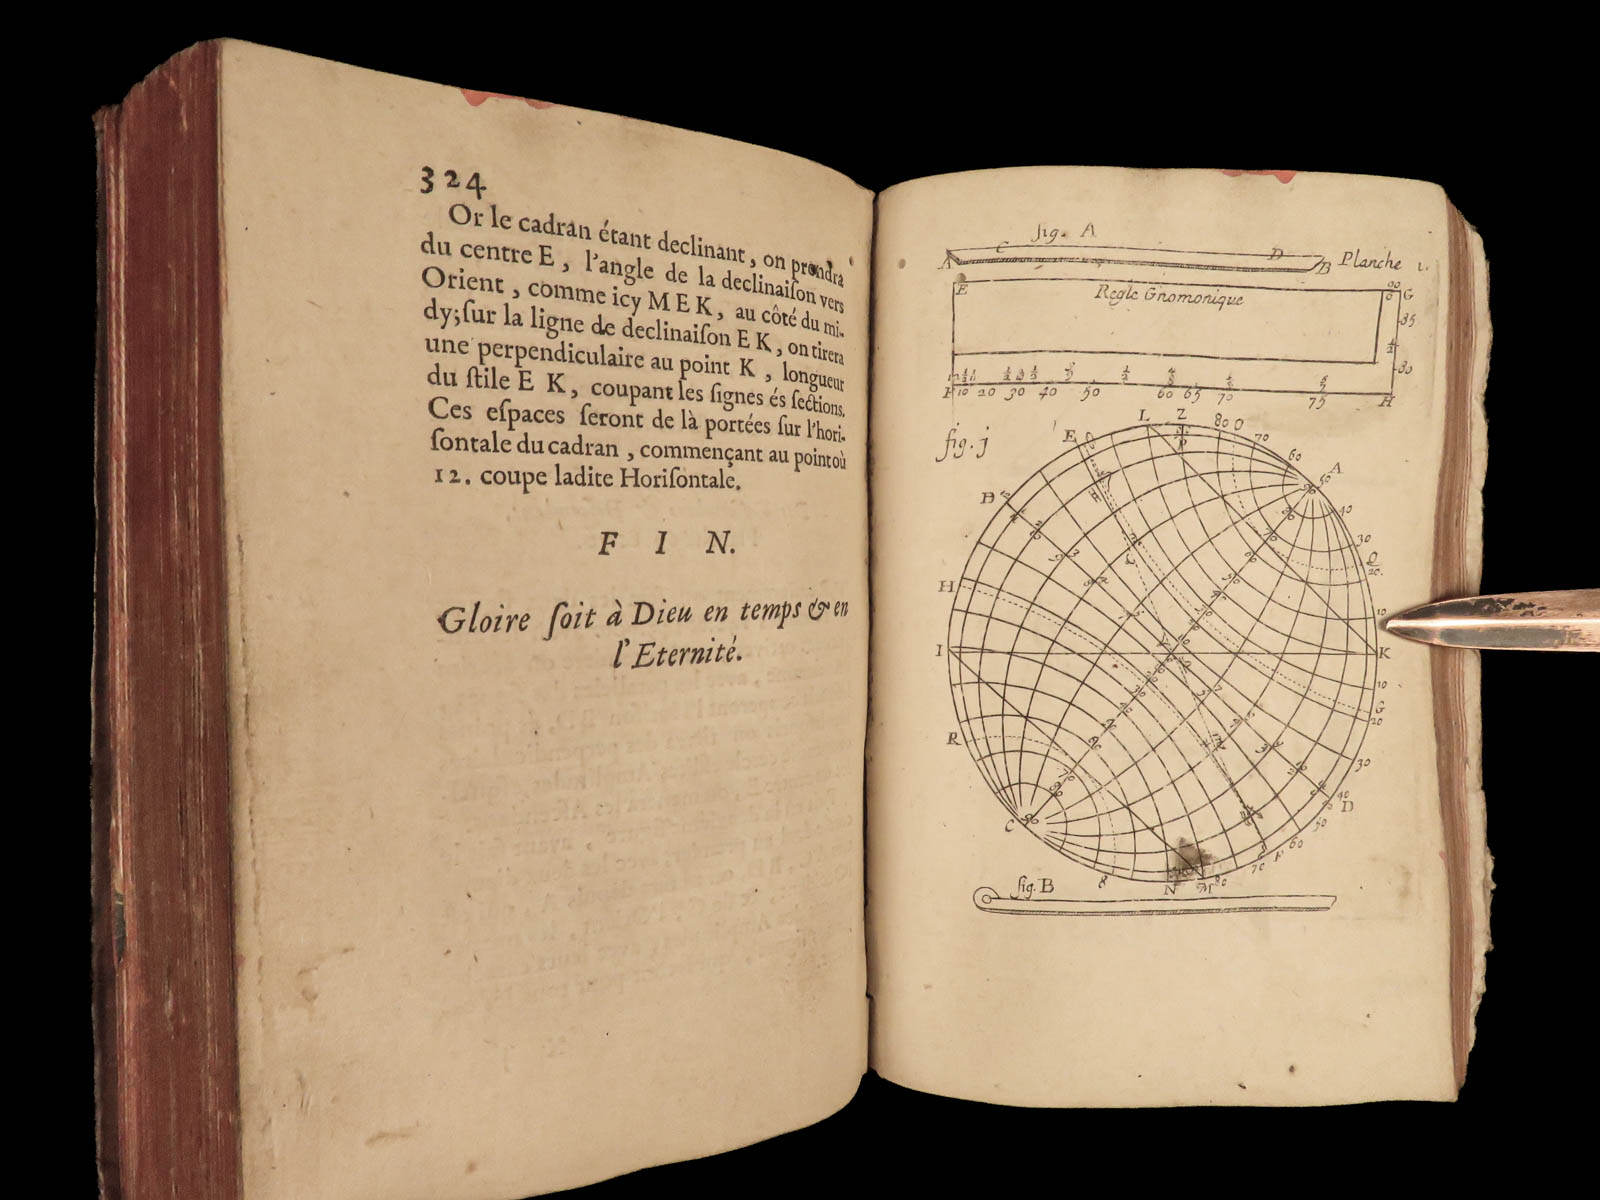 324
Or le cadran étant declinant, on prendra
du centre E, l'angle de la declinaiſon vers
Orient, comme icy M E K, au côté du mi-
dy; ſur la ligne de declinaiſon E K, on tirera
une perpendiculaire au point K, longueur
du ſtile E K, coupant les ſignes és ſections.
Ces eſpaces ſeront de là portées ſur l'hori-
ſontale du cadran, commençant au point où
12. coupe ladite Horiſontale.
F I N.
Gloire ſoit à Dieu en temps & en
l'Eternité.
fig. A
A C D B Planche 1.
E Regle Gnomonique 90 G
85
80
10 20 30 40 50 60 65 70 75 H
fig. j
E L Z 80 O 70
60
A
D 40
30
Q
20
H 10
I K
10
G
20
R 30
40
D
50
C 60
F
8 N M 80 70
fig. B